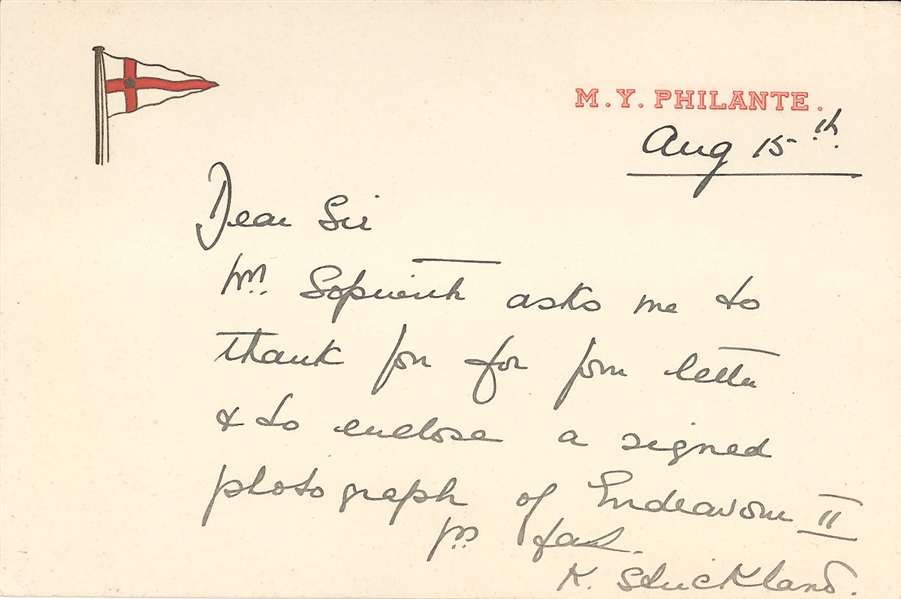 M.Y. PHILANTE.
Aug 15th.
Dear Sir
Mr. Sopwith asks me to
thank you for your letter
& to enclose a signed
photograph of Endeavour II
Yrs fail.
K. Strickland.